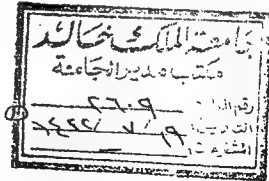 جامعة الملك خالد
مكتب مدير الجامعة
رقم ال ٢٦٠٩
التاريخ ١٩ / ٧ / ١٤٢٢
المشفوعات